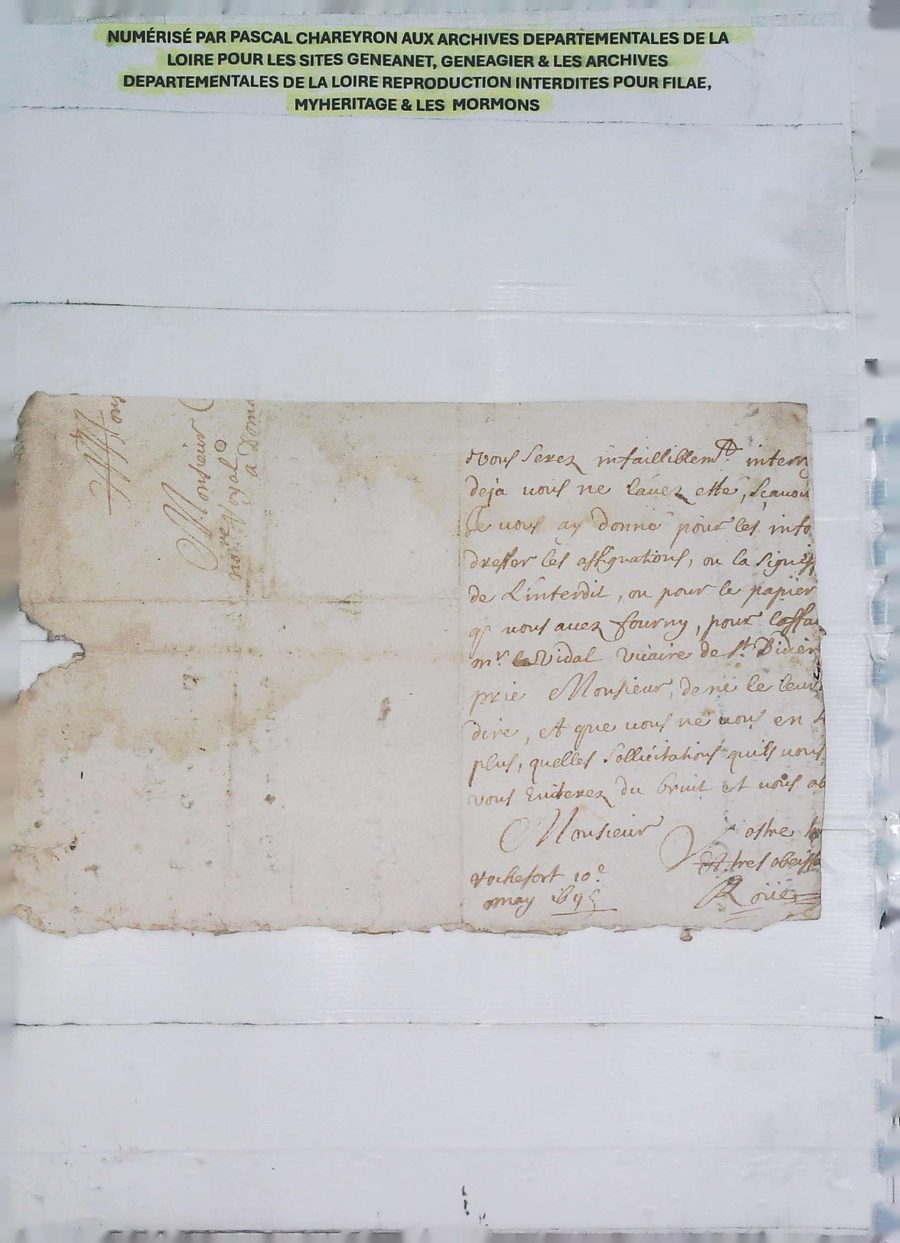 NUMÉRISÉ PAR PASCAL CHAREYRON AUX ARCHIVES DEPARTEMENTALES DE LA
LOIRE POUR LES SITES GENEANET, GENEAGIER & LES ARCHIVES
DEPARTEMENTALES DE LA LOIRE REPRODUCTION INTERDITES POUR FILAE,
MYHERITAGE & LES MORMONS
Mons
Monsieur
no.re Royal
a Dom
Vous serez infailliblem.t interr
deja vous ne lavez esté, scavoi
Je vous ay donné pour les info
dresser les assignations, ou la signif
de L'interdit, ou pour le papier
q. vous avez fourny, pour l'affai
m.r Vidal vicaire de s.t Didier
prie Monsieur, de ne le leur
dire, et que vous ne vous en
plus, quelles sollicitations qu'ils vous
vous Eviterez du bruit et vous ob
Monsieur
Vostre
Et tres obeissa
rochefort 10.e
may 1695
Roüe